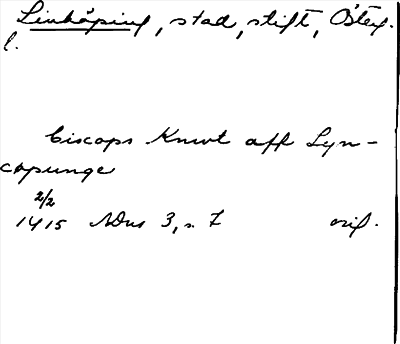 Linköping, stad, stift, Östeg.
l.
biscops Knwt aff Lyn-
copunge
2/2
1415 SDns 3, s. 7 orig.